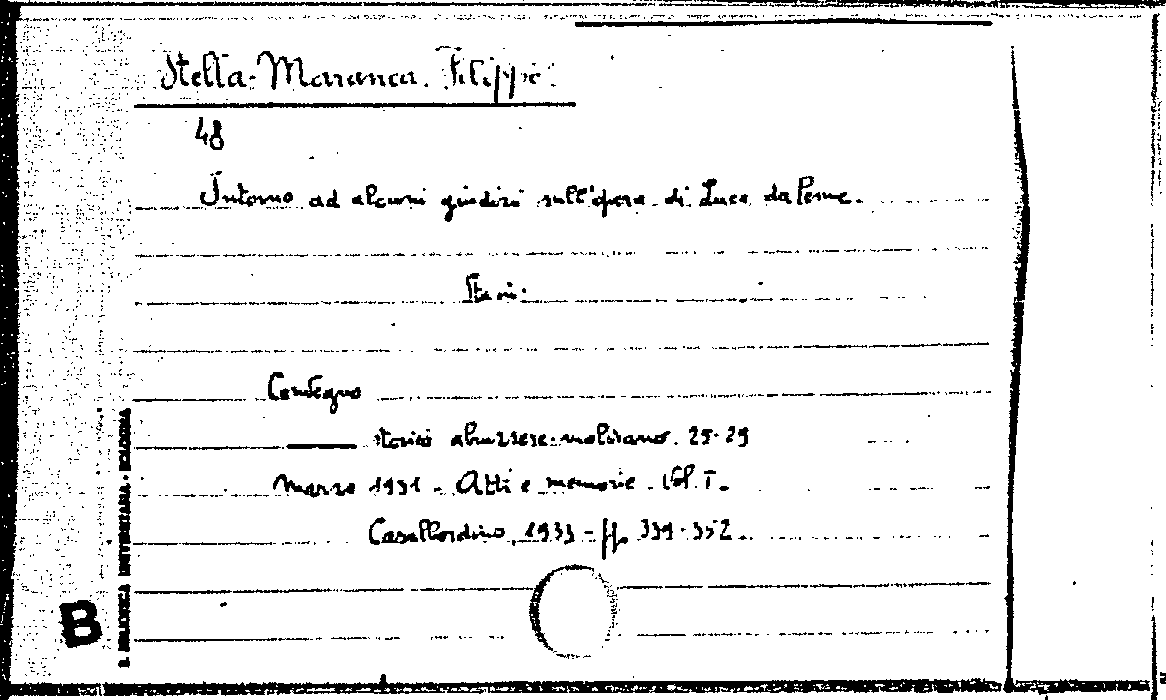 Stella-Maranca. Filippo.
48
Intorno ad alcuni giudizi sull'opera di Luca da Penne.
Convegno
storico abruzzese-molisano. 25-29
Marzo 1931 - Atti e memorie. Vol. I.
Casalbordino, 1933 - pp. 339-352.
B